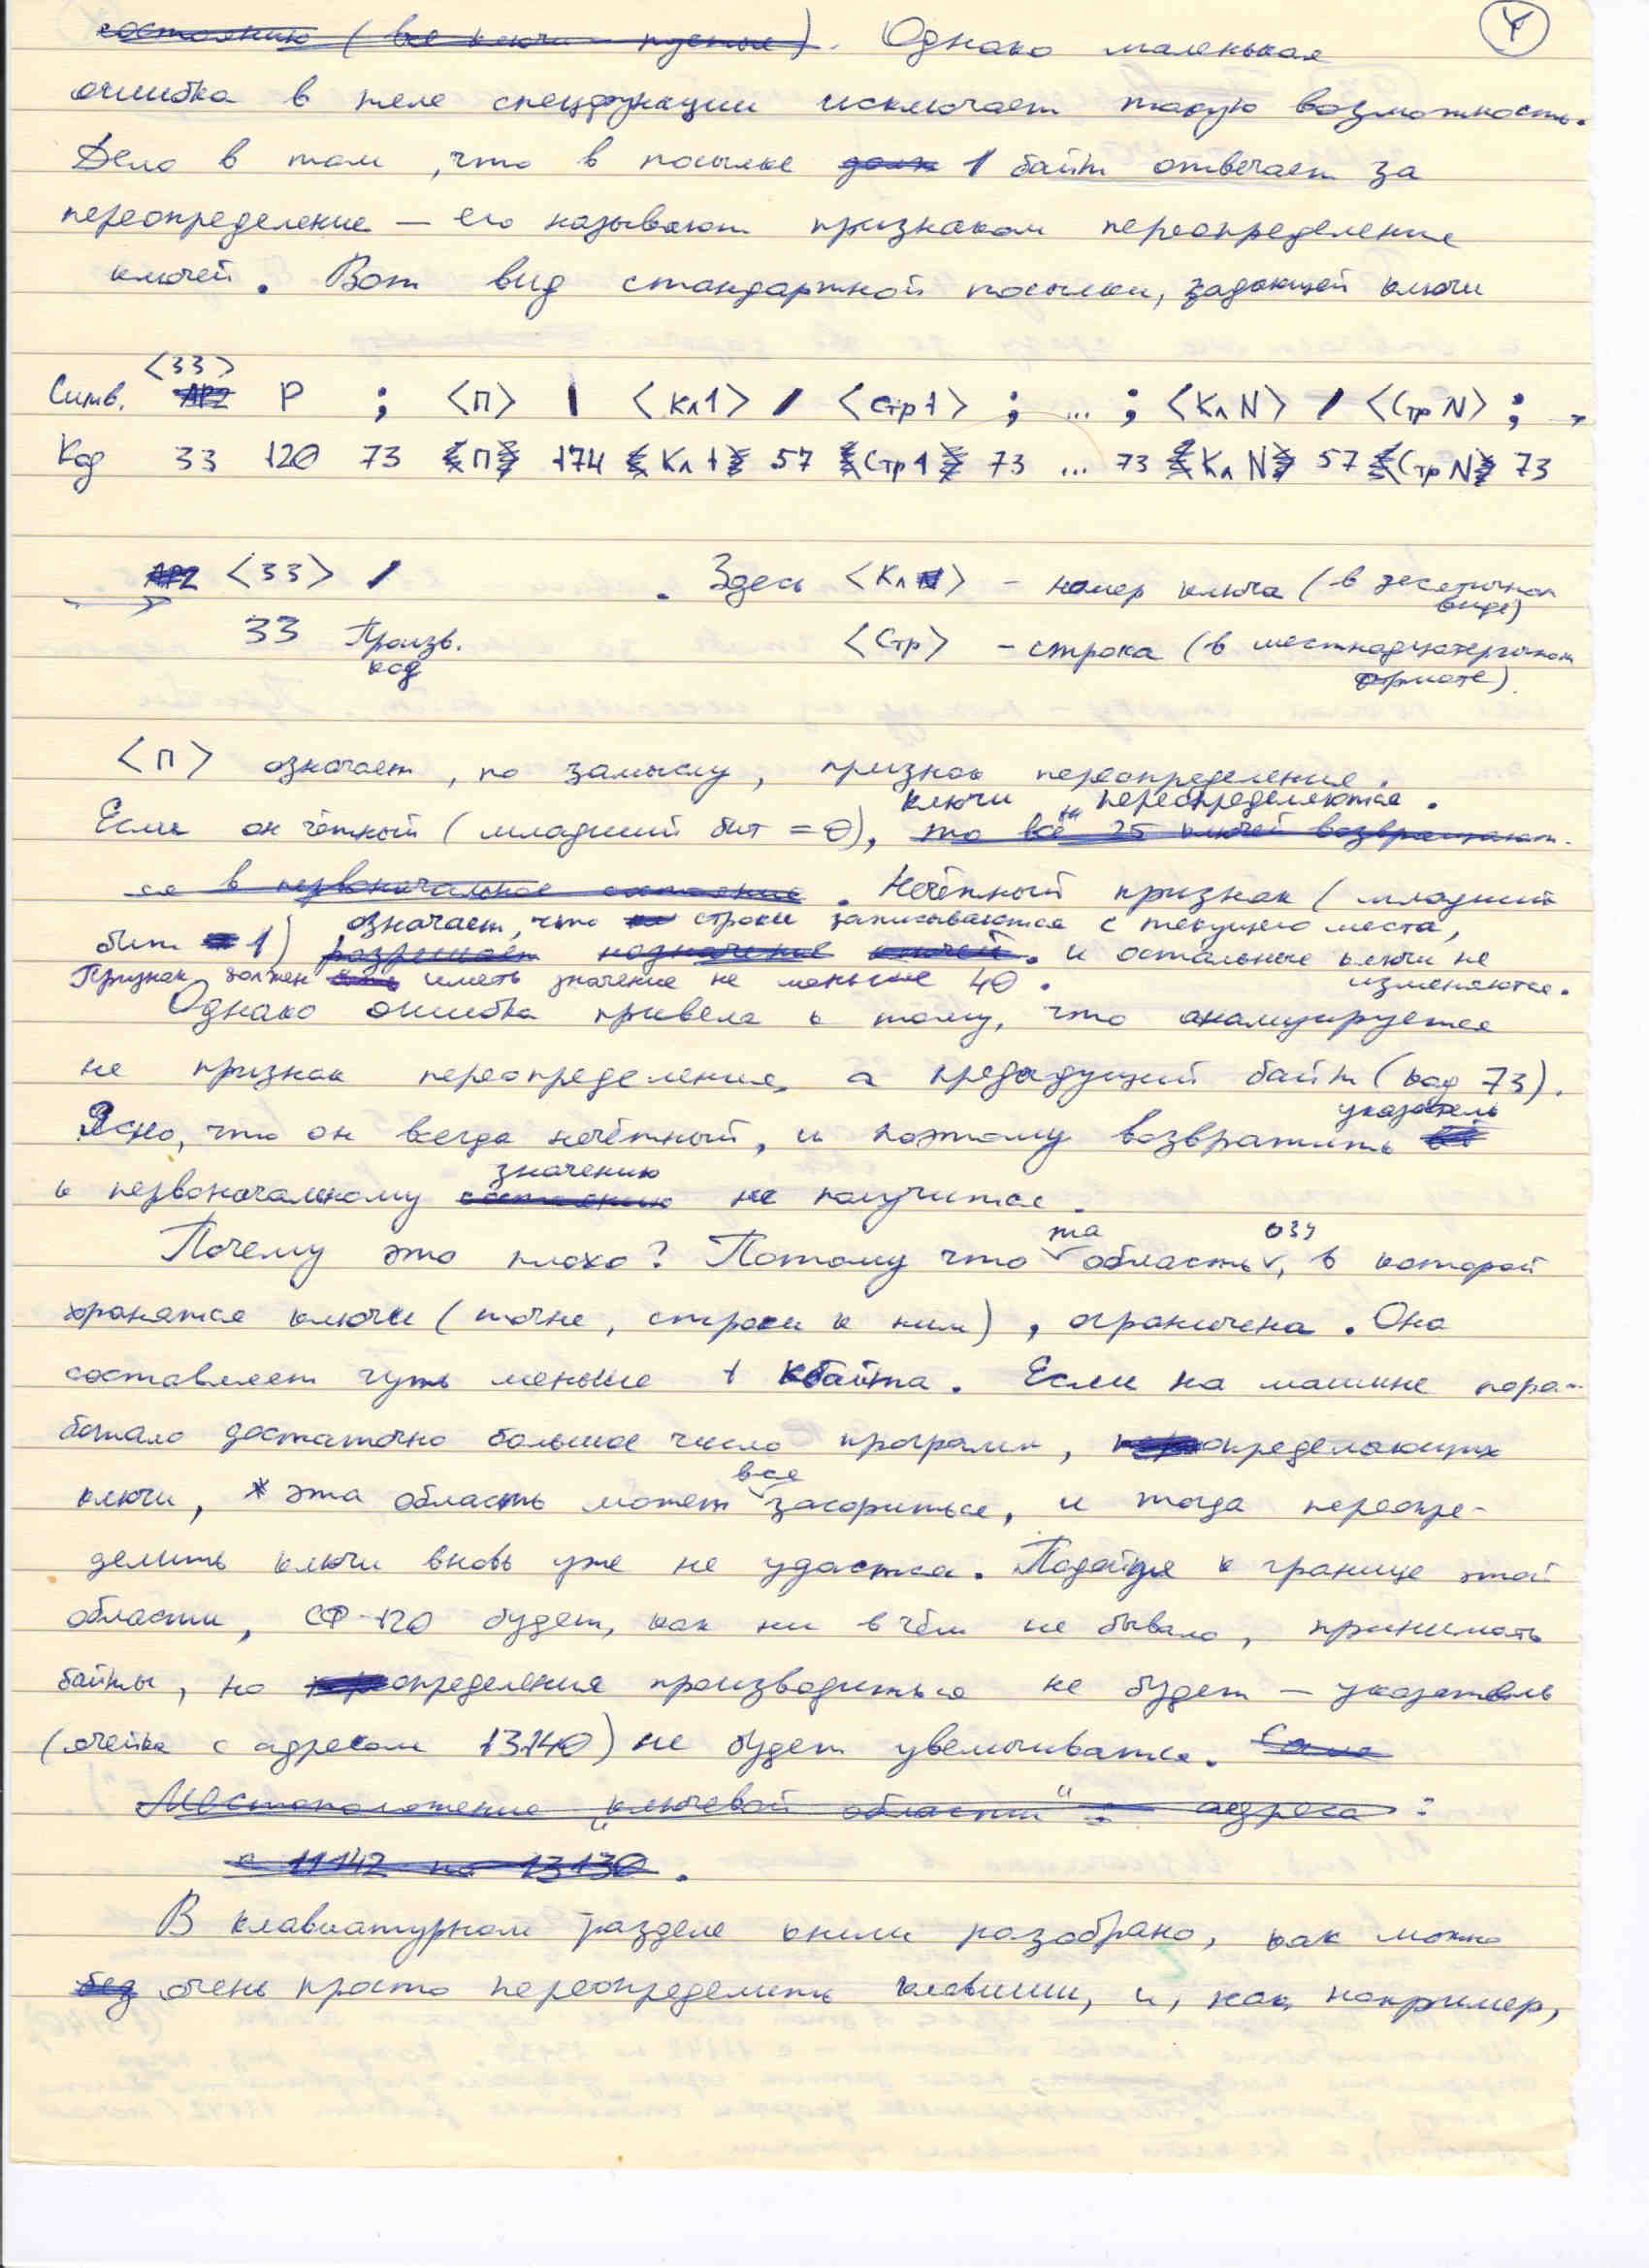 4
состоянию (все ключи — пустые). Однако маленькая
ошибка в теле спецфункции исключает такую возможность.
Дело в том, что в посылке долж 1 байт отвечает за
переопределение — его называют признаком переопределения
ключей. Вот вид стандартной посылки, задающей ключи
<33>
Симв. АР2 Р ; <П> | <Кл1> / <Стр1> ; ... ; <Кл N> / <Стр N> ; →
Код 33 120 73 <П> 174 <Кл 1> 57 <Стр 1> 73 ... 73 <Кл N> 57 <Стр N> 73
АР2 <33> / . Здесь <Кл> — номер ключа (в десятичном
виде)
33 Произв. <Стр> — строка (в шестнадцатеричном
код формате).
<П> означает, по замыслу, признак переопределения.
ключи не переопределяются.
Если он чётный (младший бит = 0), то все 25 ключей возвращают-
ся в первоначальное состояние. Нечётный признак (младший
означает, что строки записываются с текущего места,
бит = 1) разрешает назначение ключей. и остальные ключи не
Признак должен быть иметь значение не меньше 40. изменяются.
Однако ошибка привела к тому, что анализируется
не признак переопределения, а предыдущий байт (код 73).
указатель
Ясно, что он всегда нечётный, и поэтому возвратить
значению
к первоначальному состоянию не получится.
та ОЗУ
Почему это плохо? Потому что область, в которой
хранятся ключи (точнее, строки к ним), ограничена. Она
составляет чуть меньше 1 кбайта. Если на машине пора-
ботало достаточно большое число программ, переопределяющих
вся
ключи, эта область может засориться, и тогда переопре-
делить ключи вновь уже не удастся. Подойдя к границе этой
области, СФ-120 будет, как ни в чём не бывало, принимать
байты, но переопределения производиться не будет — указатель
(ячейка с адресом 13140) не будет увеличиваться. Сама
Местоположение „ключевой области“ : адреса :
с 11142 по 13130.
В клавиатурном разделе книги разобрано, как можно
без очень просто переопределить клавиши, и, как, например,